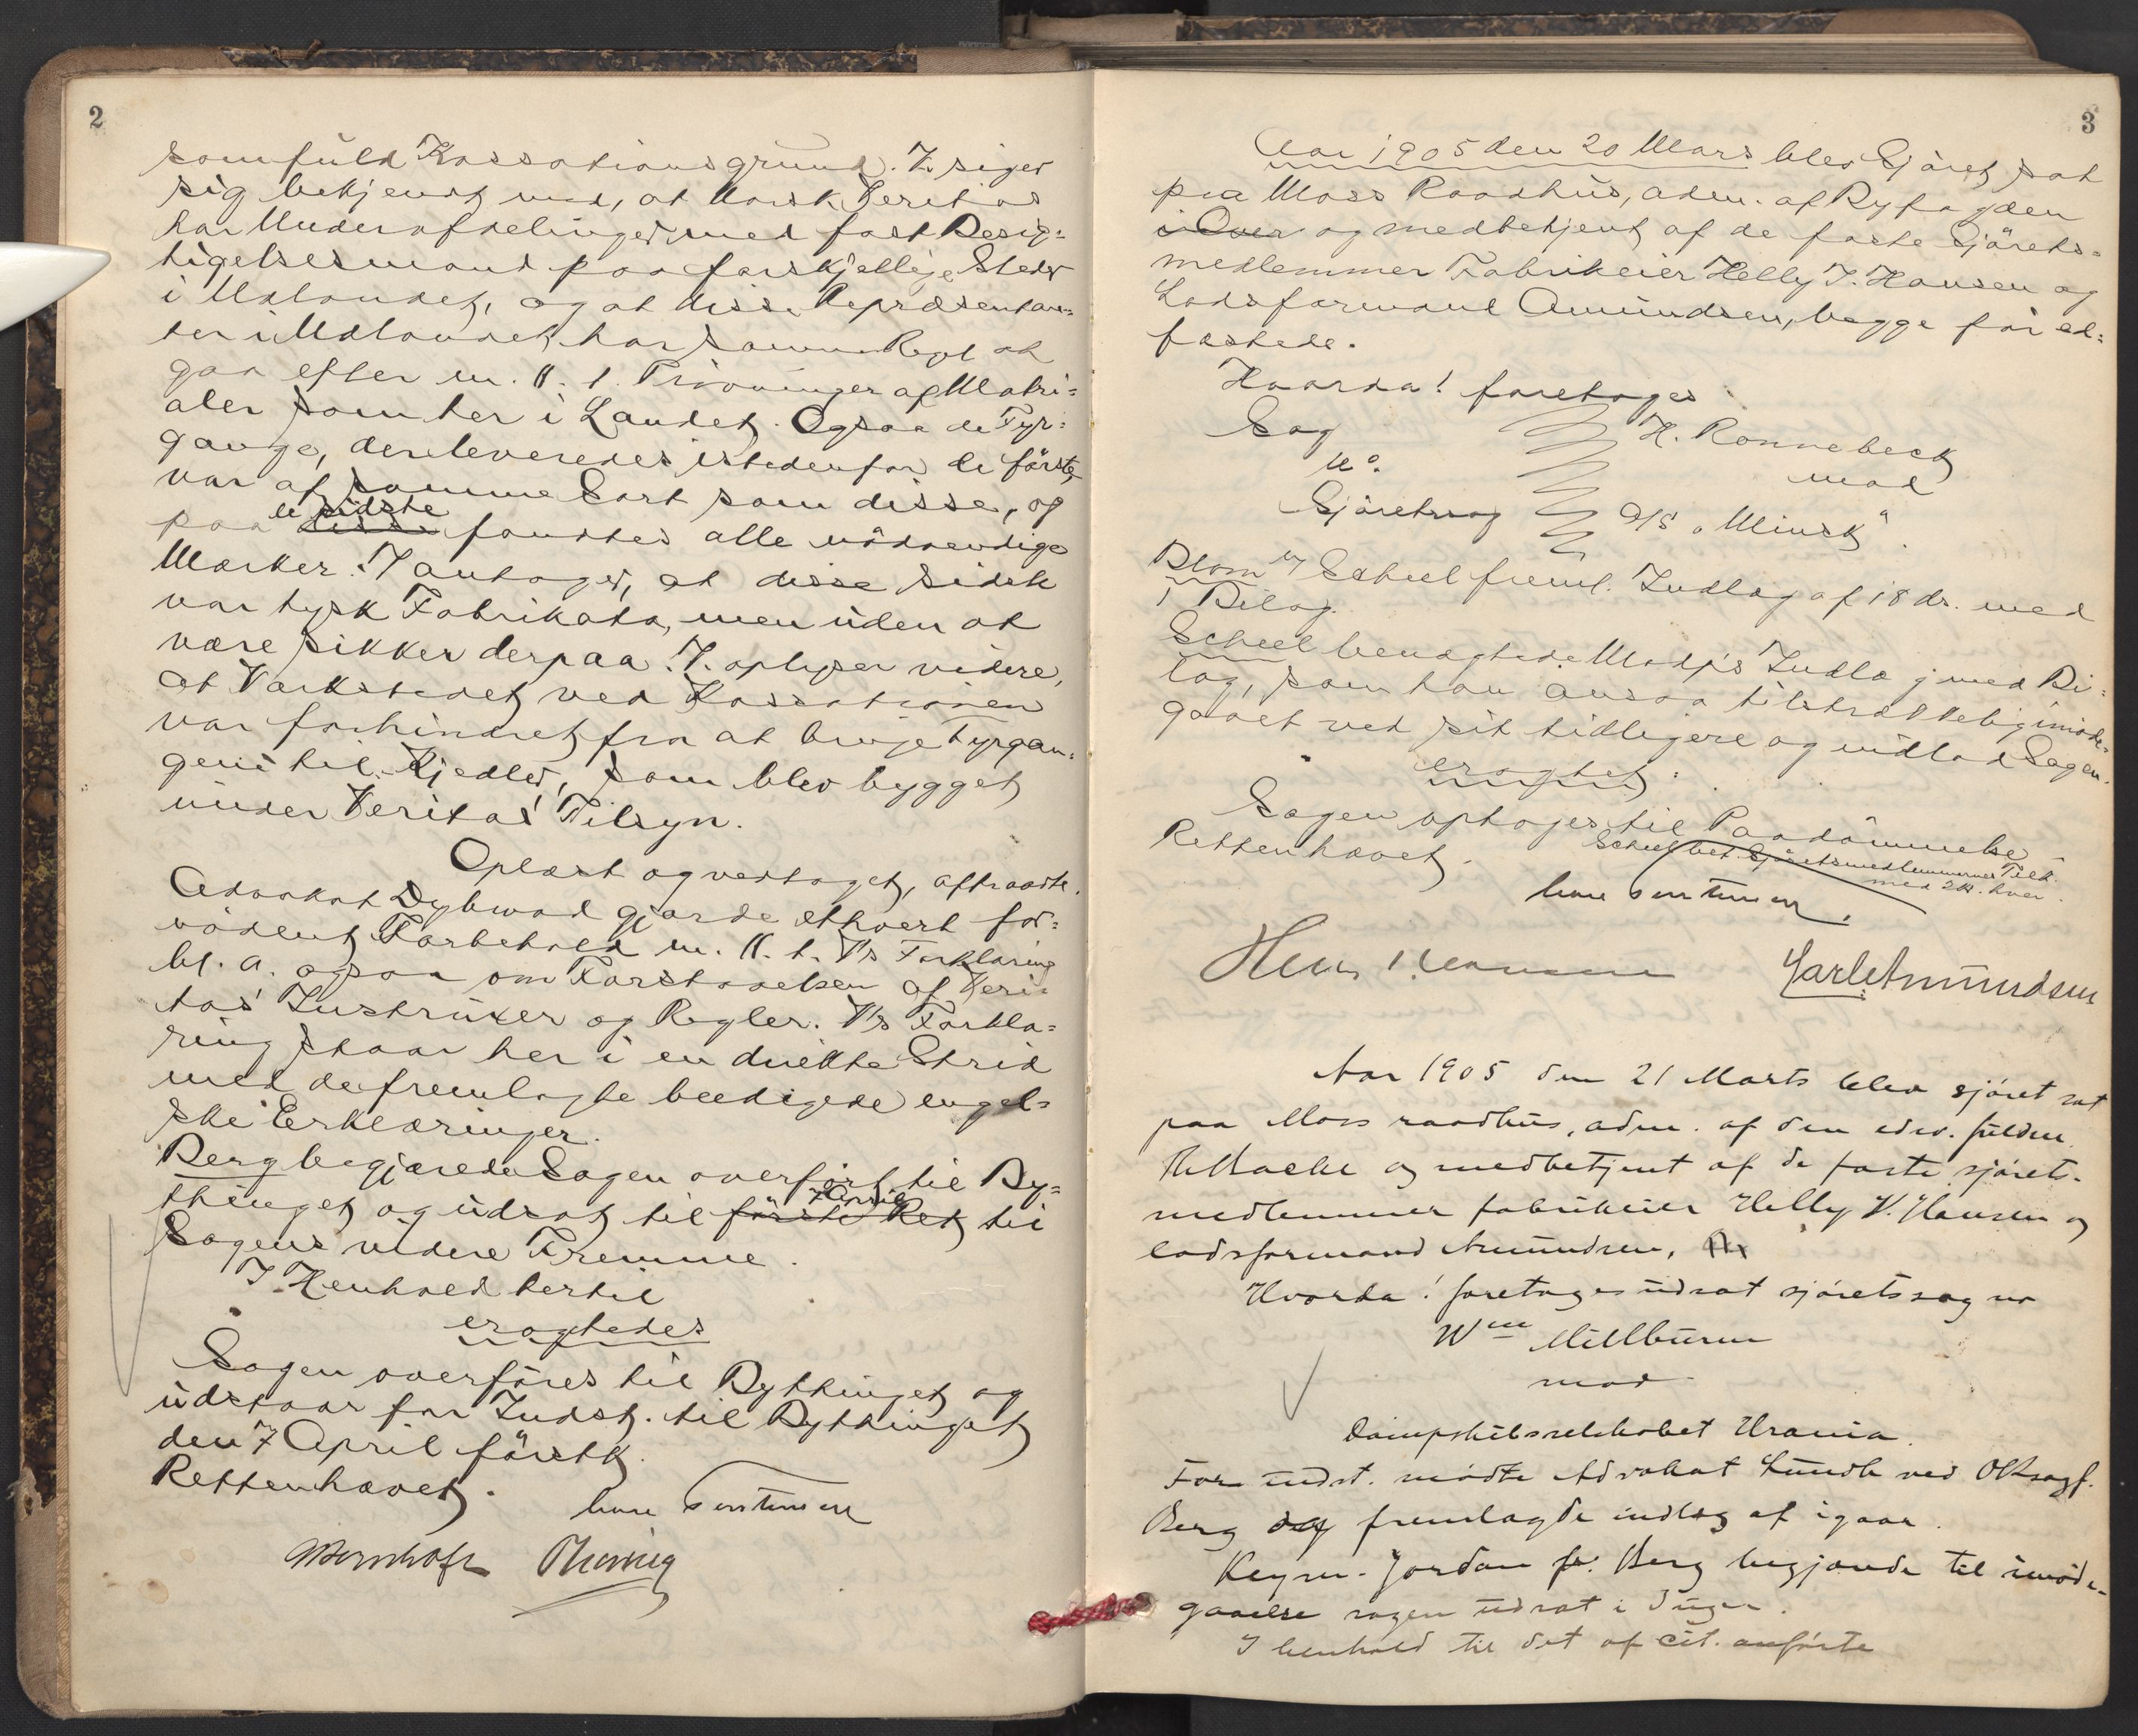 2
som fuld Kassationsgrund. V. siger
sig bekjendt med, at Norsk Veritas
har Underafdelinger med fast Besig=
tigelsesmand paa forskjellige Steder
i Udlandet, og at disse Repræsentan=
ter i Udlandet har samme Regl at
gaa efter m. H. t. Prövninger af Matri=
aler som her i Landet. Ogsaa de Fyr=
gange, der leveredes istedenfor de förste,
var af samme Sort som disse, og
paa disse de sidste fandtes alle nödvendige
Mærker. V antager, at disse sidste
var tysk Fabrikata, men uden at
være sikker derpaa. V. oplyser videre,
at Værkstedet ved Kassationen
var forhindret fra at bruge Fyrgan=
gene til Kjedler, som blev bygget
under Veritas' Tilsyn.
Oplæst og vedtaget, aftraadte.
Advokat Dybwad gjorde ethvert for=
nödent Forbehold m. H. t. V's Forklaring
bl. a. ogsaa om Forstaaelsen af Veri=
tas' Instruxer og Regler. V's Forkla=
ring staar her i en direkte Strid
med de fremlagte beedigede engel=
ske Erklæringer.
Berg begjærede Sagen overfört til By=
thinget og udsat til förste Ret April til
Sagens videre Fremme.
I Henhold hertil
eragtedes
Sagen overföres til Bythinget og
udstaar for Indst. til Bythinget
den 7 April förstk.
Retten hævet.
3
Aar 1905 den 20 Mars blev Sjöret sat
paa Moss Raadhus, adm. af Byfogden
i Over og medbetjent af de faste Sjörets=
medlemmer Fabrikeier Helly J. Hansen og
Lodsformand Amundsen, begge för ed=
fæstede.
Hvorda! foretages
Sag
No.
Sjöretssag
H. Ronnebeck
mod
D/S „Minsk".
Blom v/ Scheel freml. Indlæg af 18 ds. med
1 Bilag.
Scheel benægtede Modp's Indlæg med Bi=
lag, som han ansaa tilstrækkelig imöde=
gaaet ved sit tidligere og indlod Sagen.
eragtet:
Sagen optages til Paadömmelse
Scheel bet. Sjöretsmedlemmernes Tilk.
med 2 Kr. hver.
Retten hævet.
Carl Amundsen
Aar 1905 den 21 Marts blev sjöret sat
paa Moss raadhus, adm. af den edsv. fuldm.
og medbetjent af de faste sjörets-
medlemmer fabrikeier Helly J. Hansen og
lodsformand Amundsen.
Hvorda! foretages udsat sjöretssag no
Wm Millburn
mod
Dampskibsselskabet Urania.
For indst. mödte Advokat Lundh ved ORsagf.
Berg og fremlagde indlæg af igaar.
Keym. Jordan for Berg begjærede til imöde-
gaaelse sagen udsat i 8 dager.
I henhold til det af cit. anförte